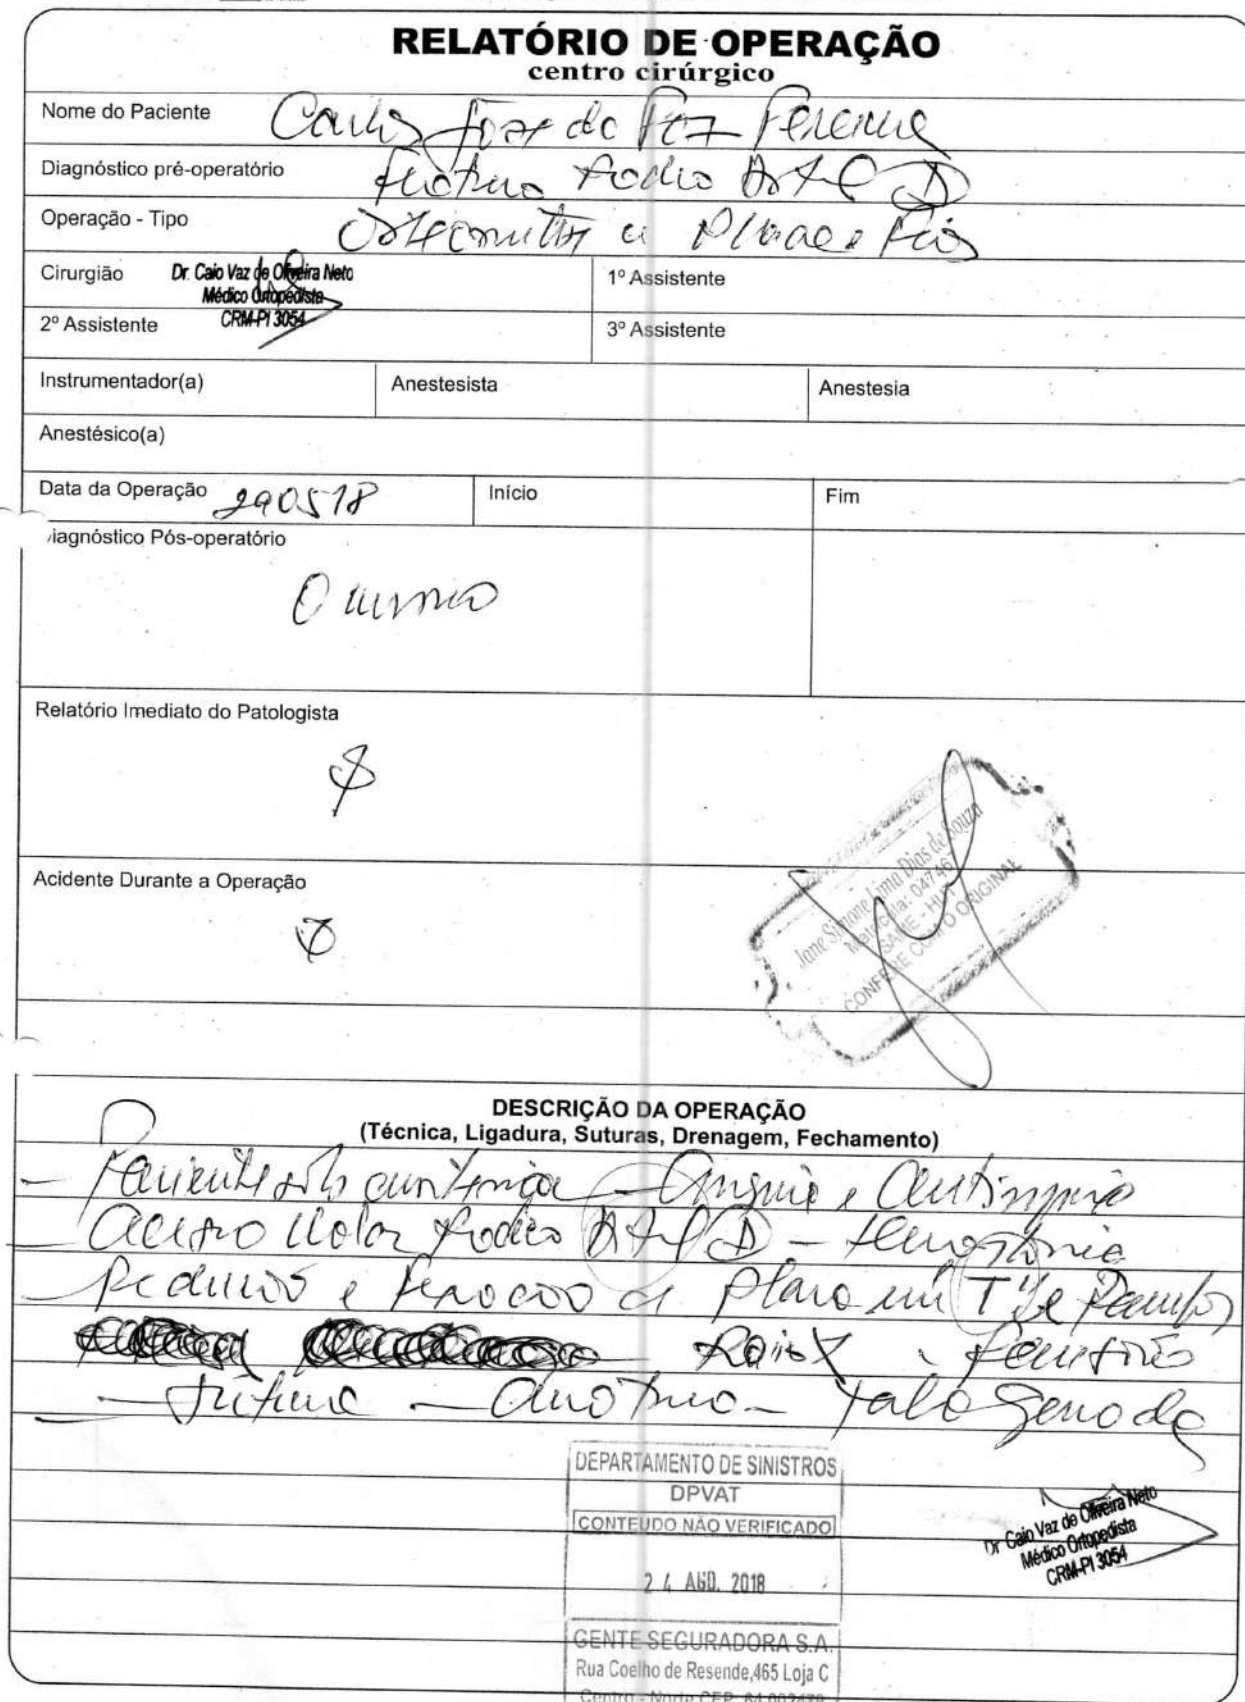 RELATÓRIO DE OPERAÇÃO
centro cirúrgico
Nome do Paciente Carlos Jose da Paz
Diagnóstico pré-operatório Fratura Radio D
Operação - Tipo Placa e Fios
Cirurgião Dr. Caio Vaz de Oliveira Neto
Médico Ortopedista
CRM-PI 3054
1º Assistente
2º Assistente
3º Assistente
Instrumentador(a)
Anestesista
Anestesia
Anestésico(a)
Data da Operação 290518
Início
Fim
iagnóstico Pós-operatório
O mesmo
Relatório Imediato do Patologista
Acidente Durante a Operação
Jane Simone Lima Dias de Souza
Matrícula: 04746
SAME - HUT
CONFERE COM O ORIGINAL
DESCRIÇÃO DA OPERAÇÃO
(Técnica, Ligadura, Suturas, Drenagem, Fechamento)
- Paciente sob anestesia - e
- Acesso Volar Radio D -
- Redução e Fixação Placa em T e
Raio X
- Sutura - - Tala Gessada
DEPARTAMENTO DE SINISTROS
DPVAT
CONTEUDO NÃO VERIFICADO
24 AGO. 2018
GENTE SEGURADORA S.A.
Rua Coelho de Resende,465 Loja C
Centro - Norte CEP. 64.002470
Dr. Caio Vaz de Oliveira Neto
Médico Ortopedista
CRM-PI 3054